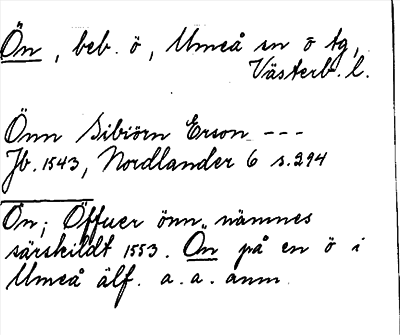 Ön, beb. ö, Umeå sn o tg,
Västerb. l.
Önn Sibiörn Erson ---
Jb. 1543, Nordlander 6 s. 294
Ön; Öffuer önn, nämnes
särskildt 1553. Ön på en ö i
Umeå älf. a. a. anm.